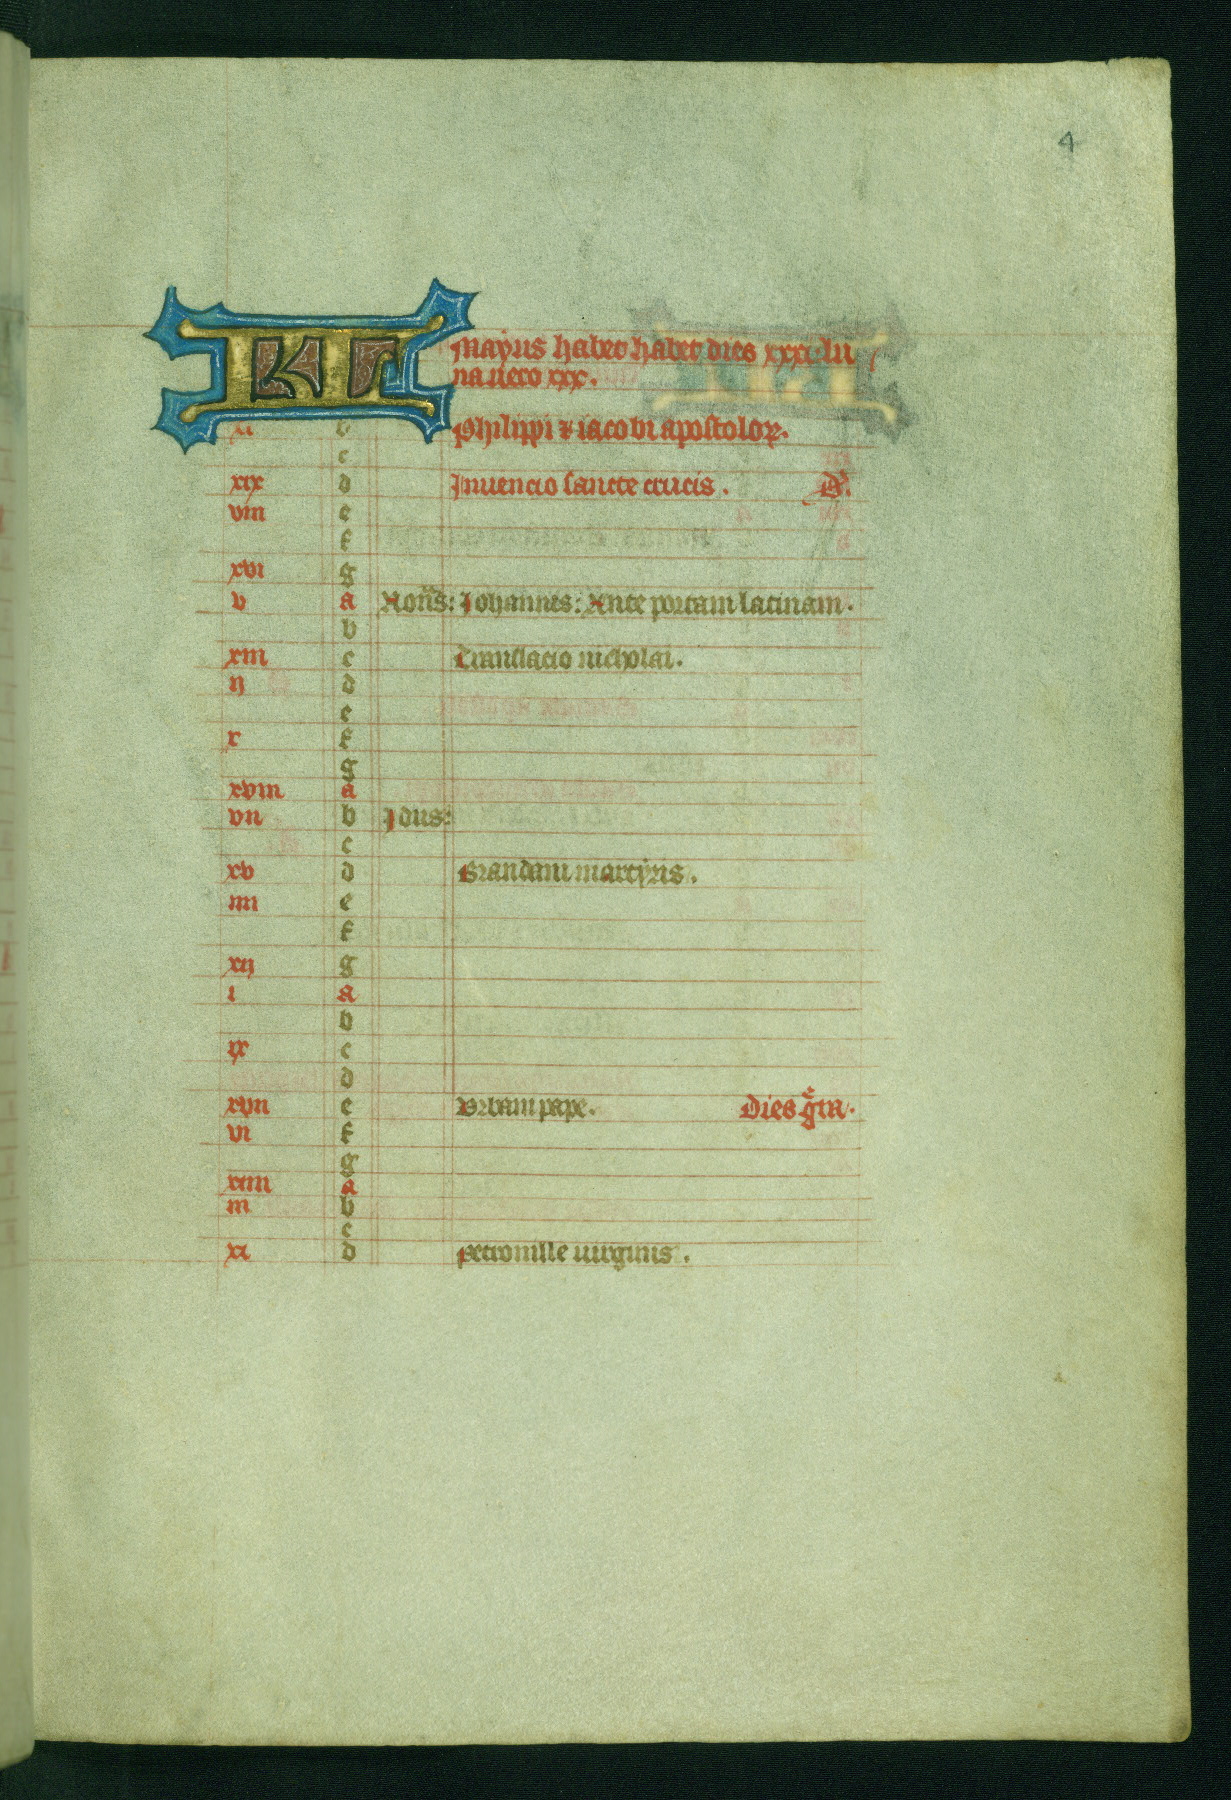 4
KL Mayus habet habet dies xxxi lu
na uero xxx.
xi b Philippi & iacobi apostolor.
c
xix d Inuencio sancte crucis. D.
viii e
f
xvi g
v A Nonis: Iohannes: Ante portam latinam.
b
xiii c Translacio nicholai.
ii d
e
x f
g
xviii A
vii b Idus:
c
xv d Brandani martyris.
iiii e
f
xii g
i A
b
ix c
d
xvii e Urbani pape. Dies gra.
vi f
g
xiiii A
iii b
c
xi d Petronille uirginis.